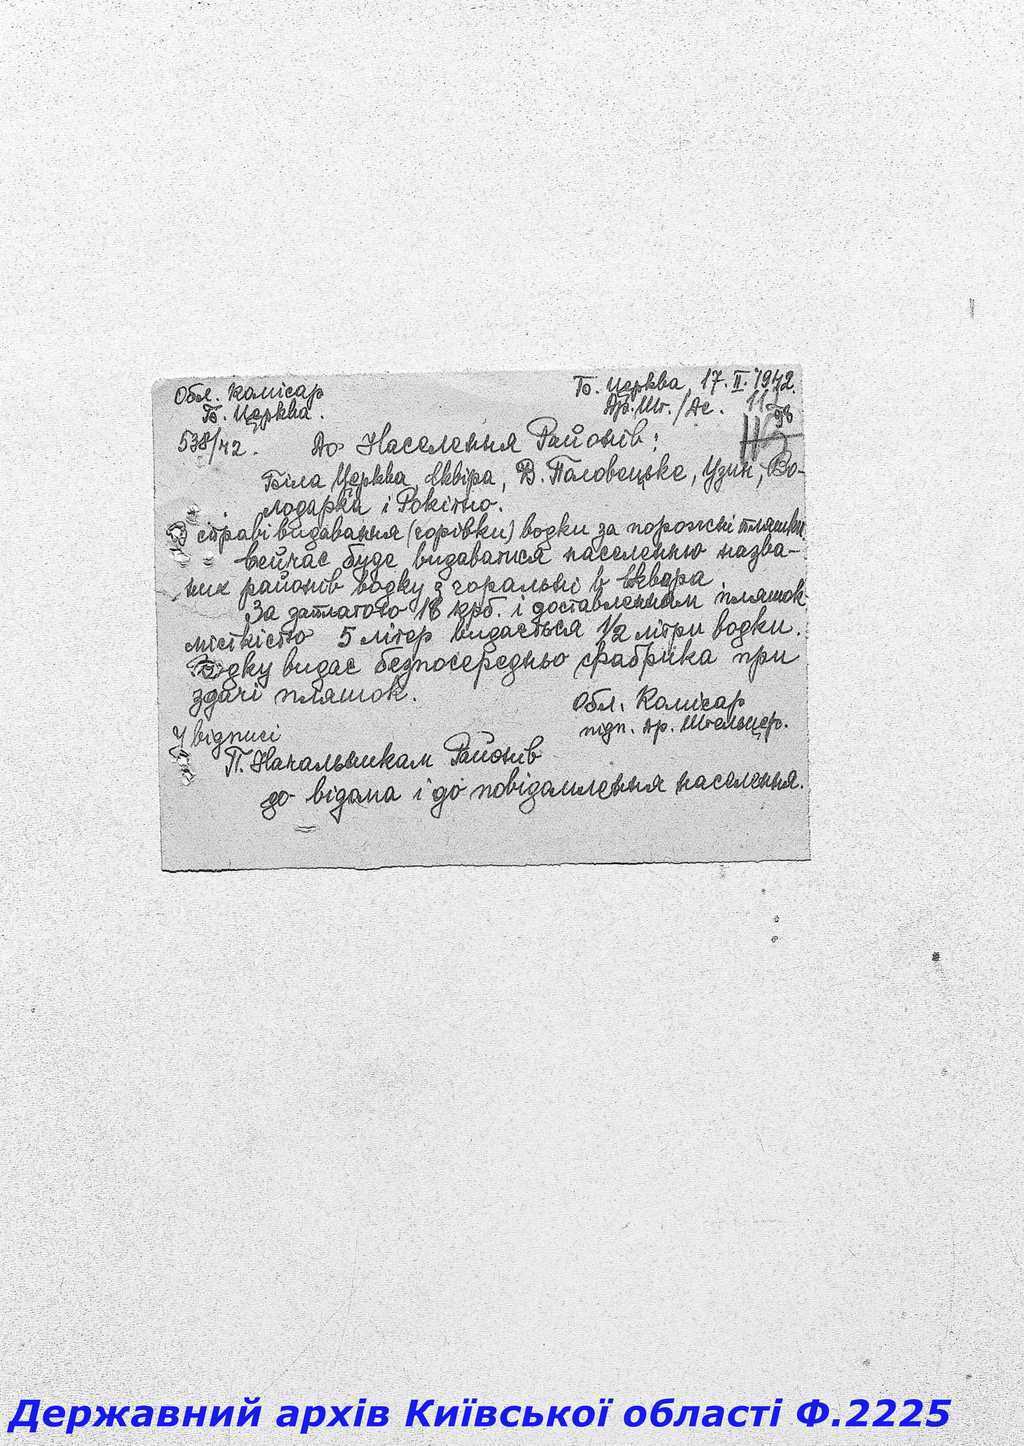 Обл. Комісар
Б. Церква.
538/42.
Б. Церква, 17.II.1942.
Др. Шт./Ас.
98
До Населення Районів:
Біла Церква, Сквіра, В. Половецьке, Узин, Во-
лодарка і Рокітно.
В справі видавання (горівки) водки за порожні пляшки
Сейчас буде видаватися населенню назва-
них районів водку з горальні в Сквира
За заплатою 18 крб. і доставленням пляшок
місткістю 5 літер видається 1/2 літри водки.
Водку видає безпосередньо фабрика при
здачі пляшок.
Обл. Комісар
підп. Др. Штельцер.
У відписі
П. Начальникам Районів
до відома і до повідомлення населення.
Державний архів Київської області Ф.2225